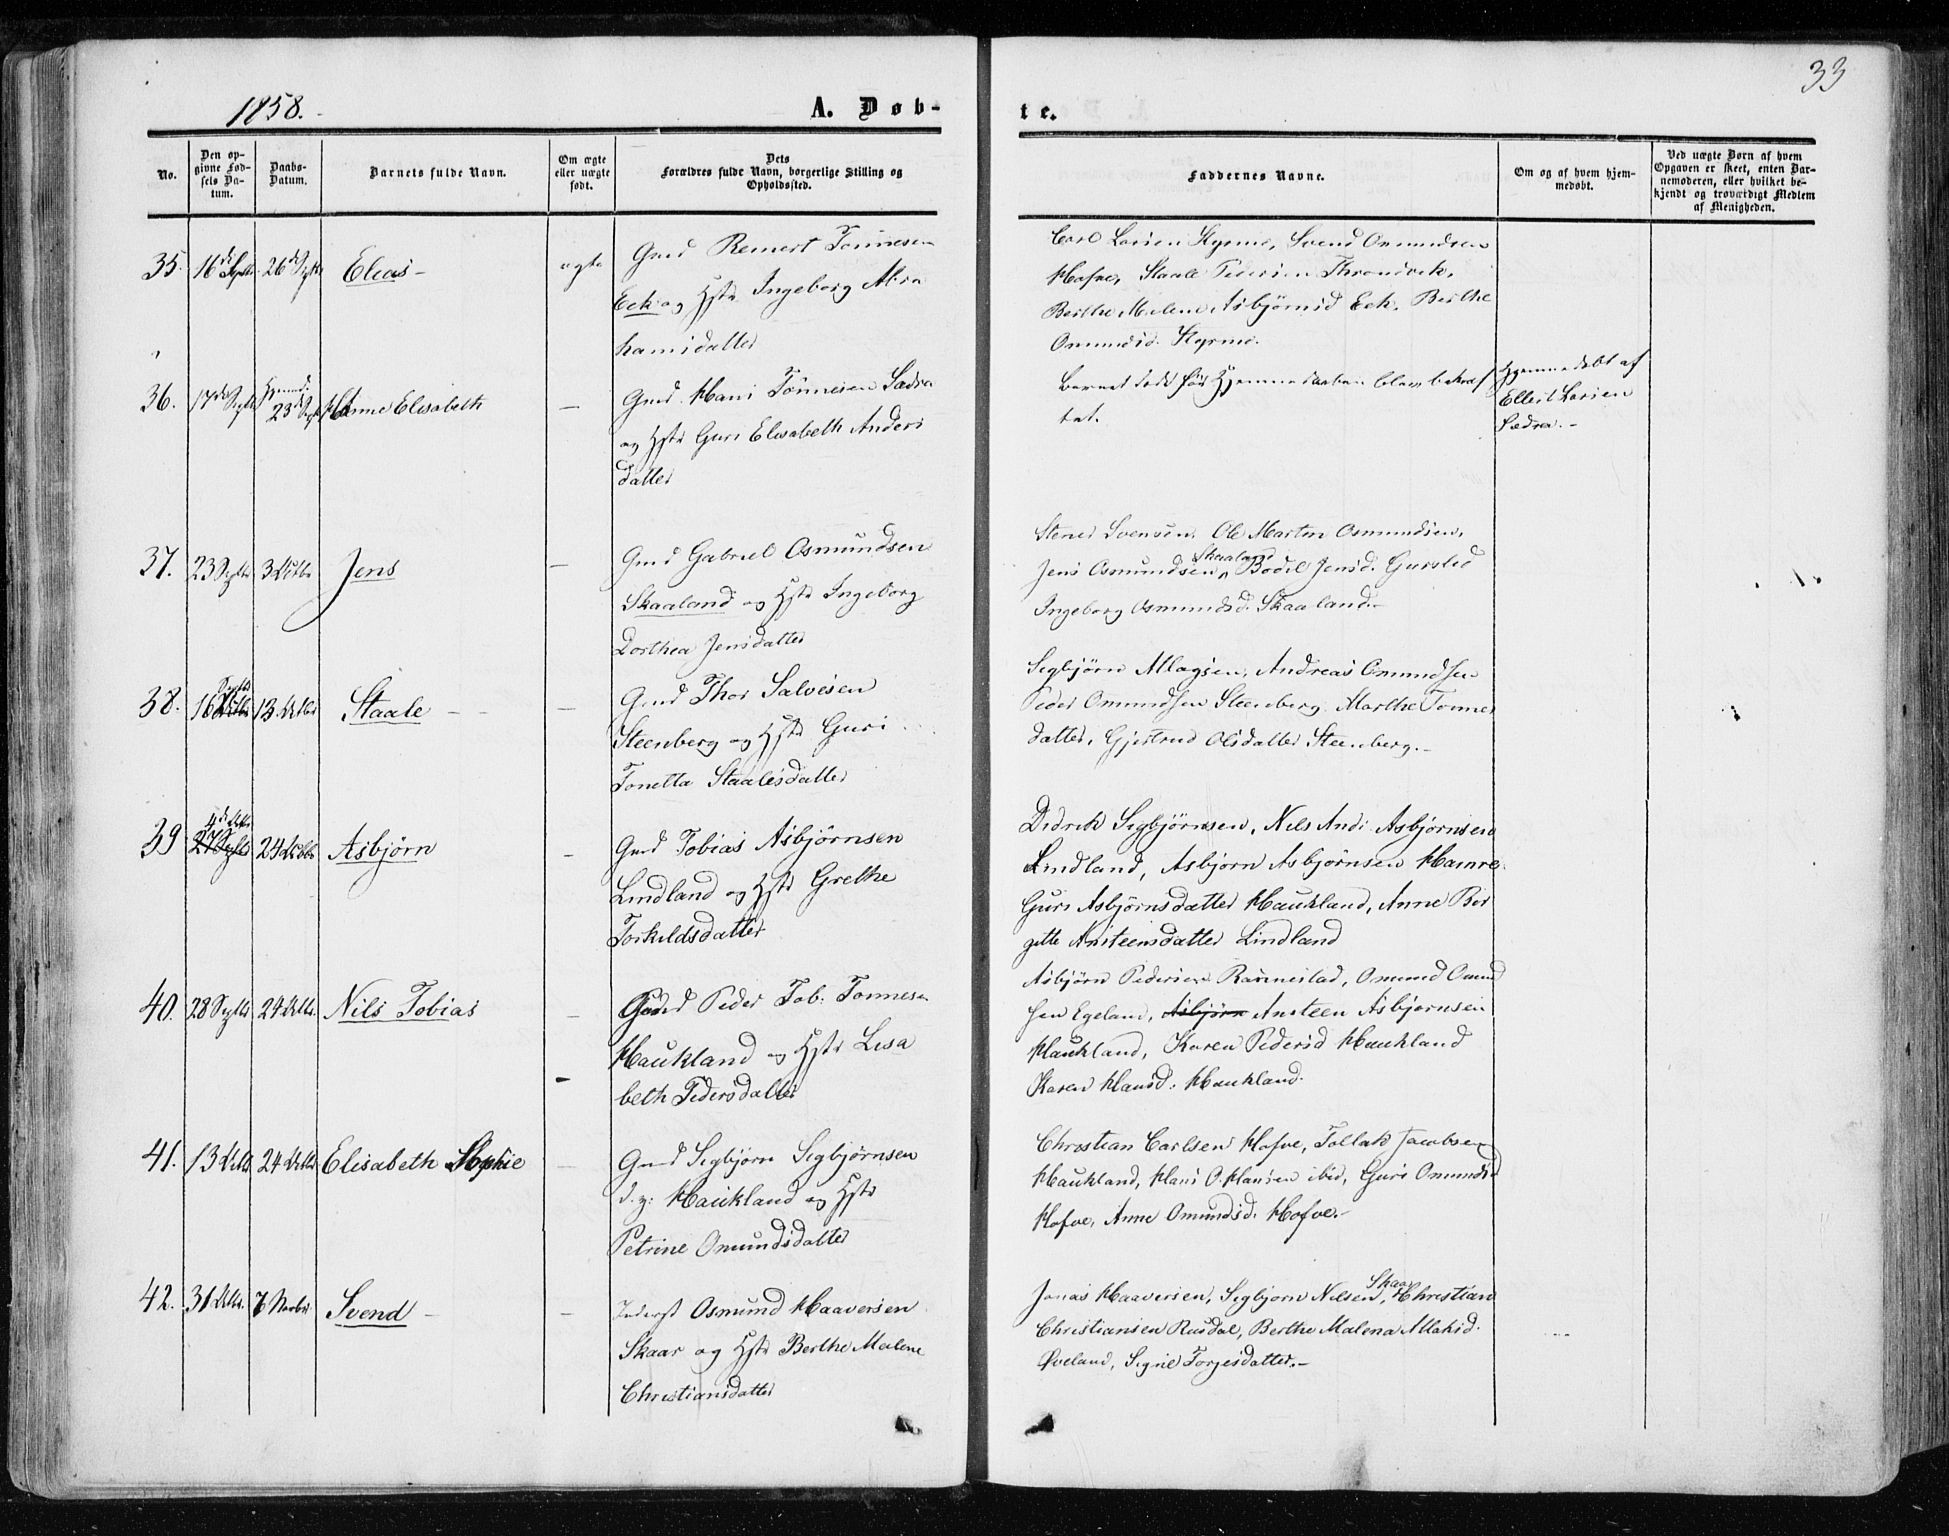 1858.
A. Døb-
te.
33
No.
Den op-
givne Fød-
sels Da-
tum.
Daabs-
Datum.
Barnets fulde Navn.
Om ægte
eller uægte
født.
Dets
Forældres fulde Navn, borgerlige Stilling og
Opholdssted.
Faddernes Navne.
Om og af hvem hjem-
medøbt.
Ved uægte Børn af hvem
Opgaven er skeet, enten Bar-
nemoderen, eller hvilket be-
kjendt og troværdigt Medlem
af Menigheden.
35. 16de Septbr 26de Septbr Elias - ægte Gmd Reinert Tönnesen
Eek og Hstr Ingeborg Abra
hamsdatter
Carl Larsen Hyrme, Svend Omundsen
Hofve, Staale Pedersen Throndvik,
Berthe Malene Asbjörnsd Eek, Berthe
Omundsd. Hyrme.
36. 17de Septbr Hjemmed. 23de Septbr Hanne Elisabeth — Gmd. Hans Tönnesen Sædra
og Hstr Guri Elisabeth Anders
datter
Barnet døde før Hjemmedaaben blev bekræf
tet.
Hjemmedøbt af
Ellert Larsen
Sædra. -
37. 23 Septbr 3 Octbr Jens — Gmd Gabriel Osmundsen
Skaaland og Hstr Ingeborg
Dorthea Jensdatter
Stener Svensen, Ole Martin Osmundsen,
Jens Osmundsen Skaaland, Bodil Jensd. Gursled
Ingeborg Osmundsd. Skaaland.-
38. 16 Septbr 13 Octbr Staale — Gmd Thor Salvesen
Steenberg og Hstr Guri
Tonetta Staalesdatter
Sigbjörn Atlagsen, Andreas Omundsen
Peder Omundsen Steenberg, Marthe Tönnes
datter, Gjertrud Olsdatter Steenberg.-
39 4de Octbr 27 Septbr 24 Octbr Asbjörn — Gmd Tobias Asbjörnsen
Lindland og Hstr Grethe
Torkildsdatter
Didrik Sigbjörnsen, Nils And: Asbjörnsen
Lindland, Asbjörn Asbjörnsen Hamre
Guri Asbjörnsdatter Haukland, Anne Bir
gitte Ansteensdatter Lindland
40. 28 Septbr 24 Octbr. Nils Tobias — Gmd Peder Tob: Tonnesen
Haukland og Hstr Lisa
beth Pedersdatter
Asbjörn Pedersen Rannestad, Omund Omund
sen Egeland, Asbjörn Ansteen Asbjørnsen
Haukland, Karen Pedersd Haukland
Karen Hansd. Haukland.
41. 13 Octbr 24 Octbr Elisabeth Sophie — Gmd Sigbjörn Sigbjørnsen
d.y. Haukland og Hstr
Petrine Omundsdatter
Christian Carlsen Hofve, Tollak Jacobsen
Haukland, Hans O. Hansen ibid, Guri Omundsd
Hofve, Anne Omundsd. Hofve.-
42. 31 Octbr. 7 Novbr. Svend - — Inderst Osmund Haaversen
Skaar og Hstr Berthe Malene
Christiansdatter
Jonas Haaversen, Sigbjorn Nilsen Skaar, Christian
Christiansen Rusdal, Berthe Malena Atlaksd.
Øveland, Signe Torjesdatter.-